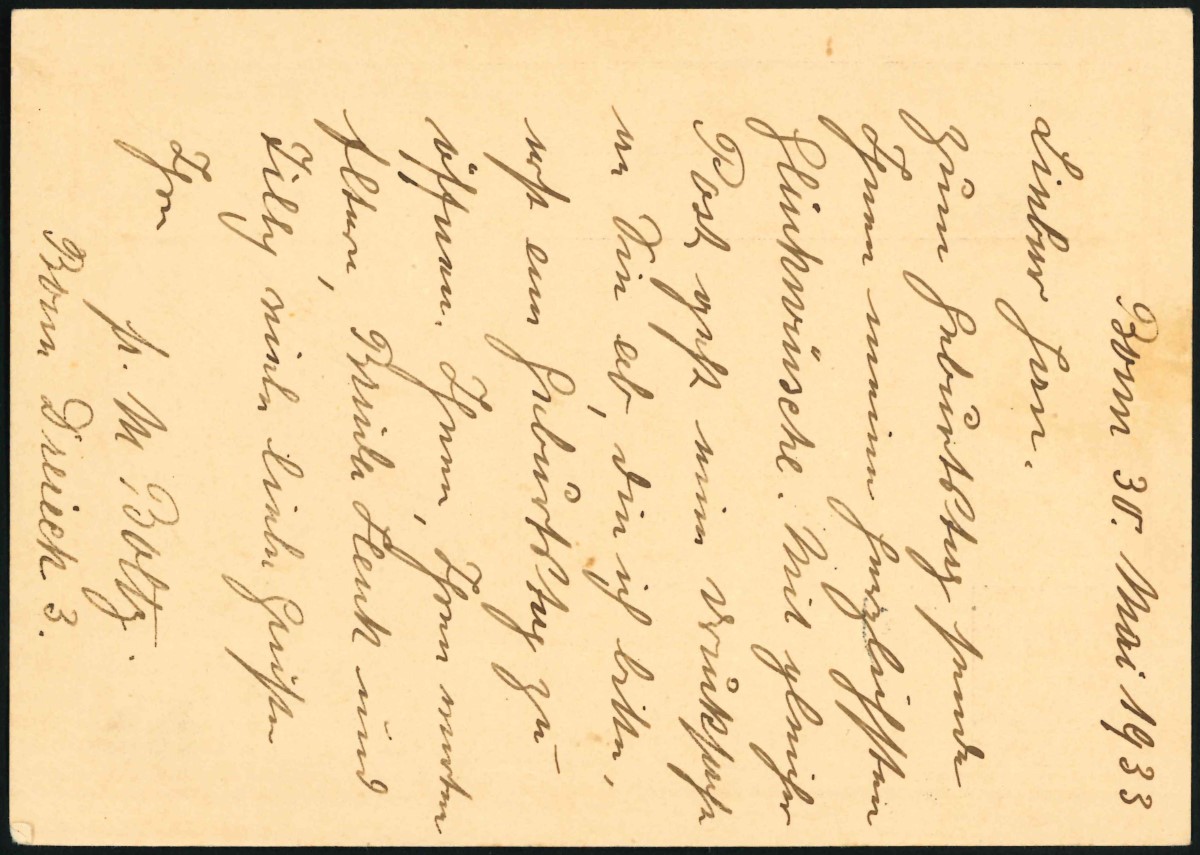 Bonn 30. Mai 1933
Lieber
Zum Geburtstag sende
Ihnen meine herzlichsten
Glückwünsche. Mit gleicher
Post geht eine Drucksache
an Sie ab, die ich bitte,
erst am Geburtstag zu
öffnen. Ihnen, Ihren werten
Eltern, Bruder Henk und
Tilly viele liebe Grüße
Ihre
Fr. M Boltz.
Bonn Dreieck 3.